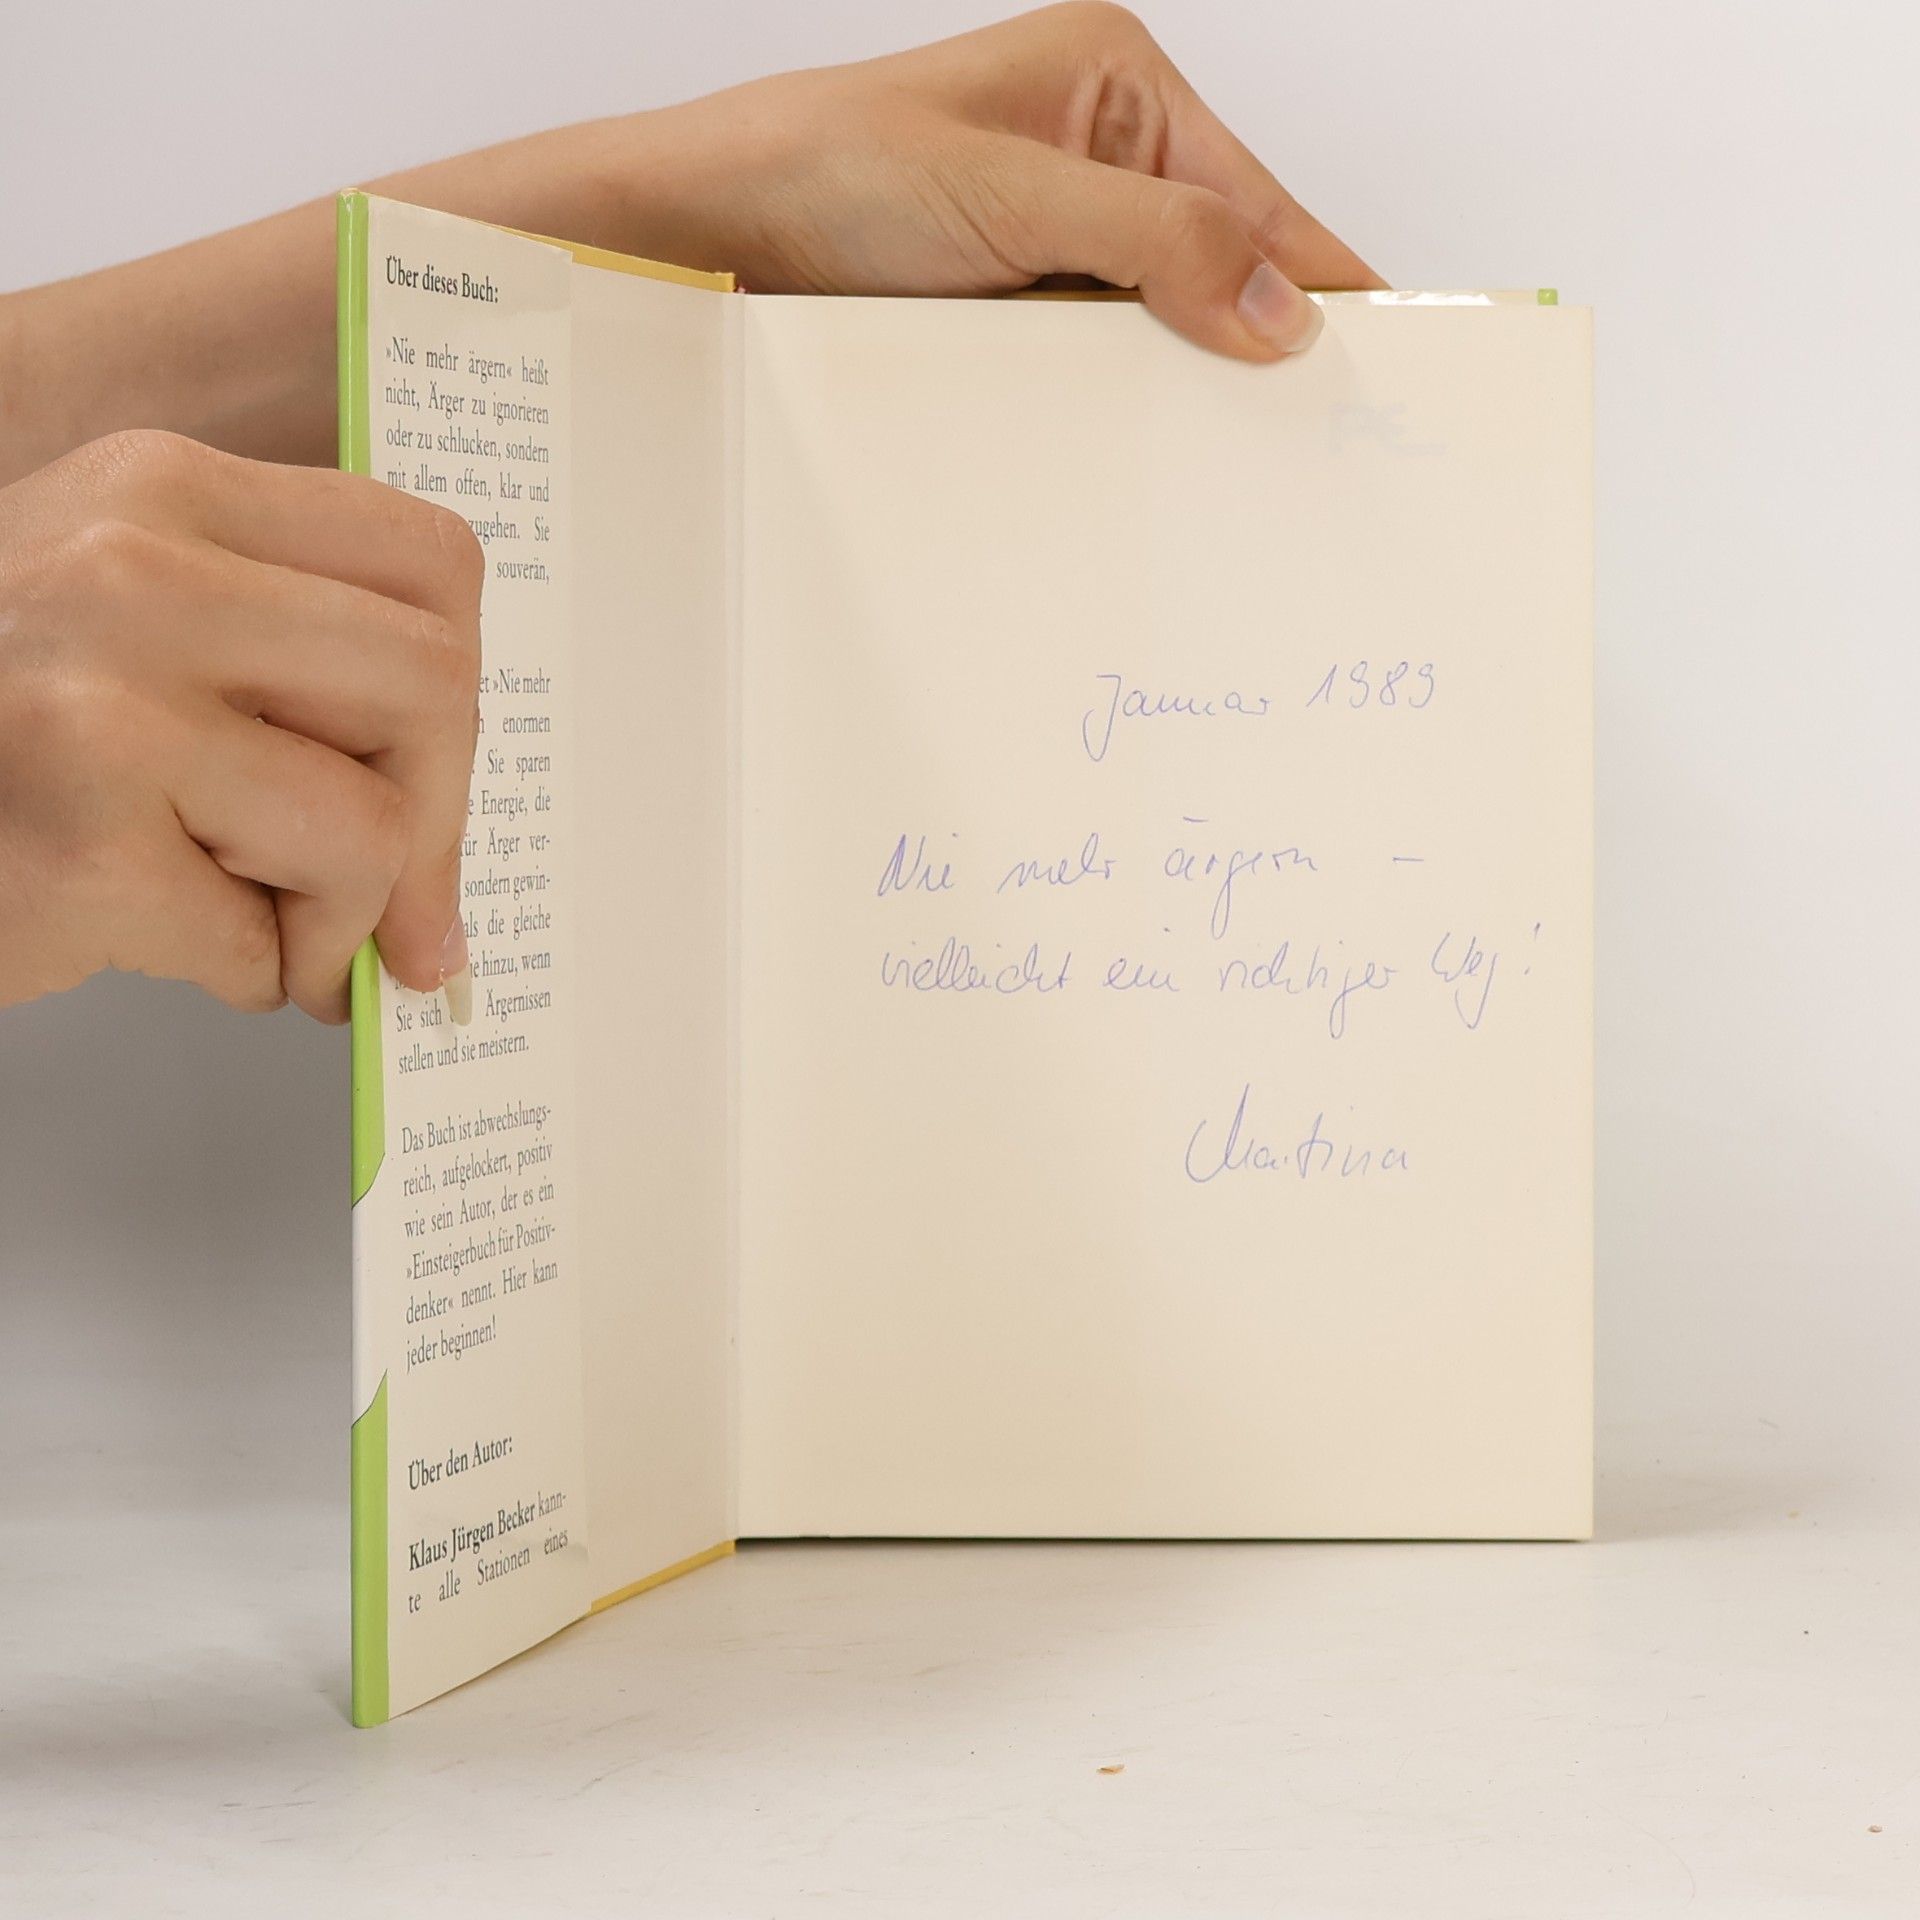 Über dieses Buch:
»Nie mehr ärgern« heißt
nicht, Ärger zu ignorieren
oder zu schlucken, sondern
mit allem offen, klar und
zugehen. Sie
souverän,
et »Nie mehr
h enormen
. Sie sparen
e Energie, die
für Ärger ver-
sondern gewin-
als die gleiche
ie hinzu, wenn
Sie sich Ärgernissen
stellen und sie meistern.
Das Buch ist abwechslungs-
reich, aufgelockert, positiv
wie sein Autor, der es ein
»Einsteigerbuch für Positiv-
denker« nennt. Hier kann
jeder beginnen!
Über den Autor:
Klaus Jürgen Becker kann-
te alle Stationen eines
Januar 1989
Nie mehr ärgern –
vielleicht ein richtiger Weg!
Martina